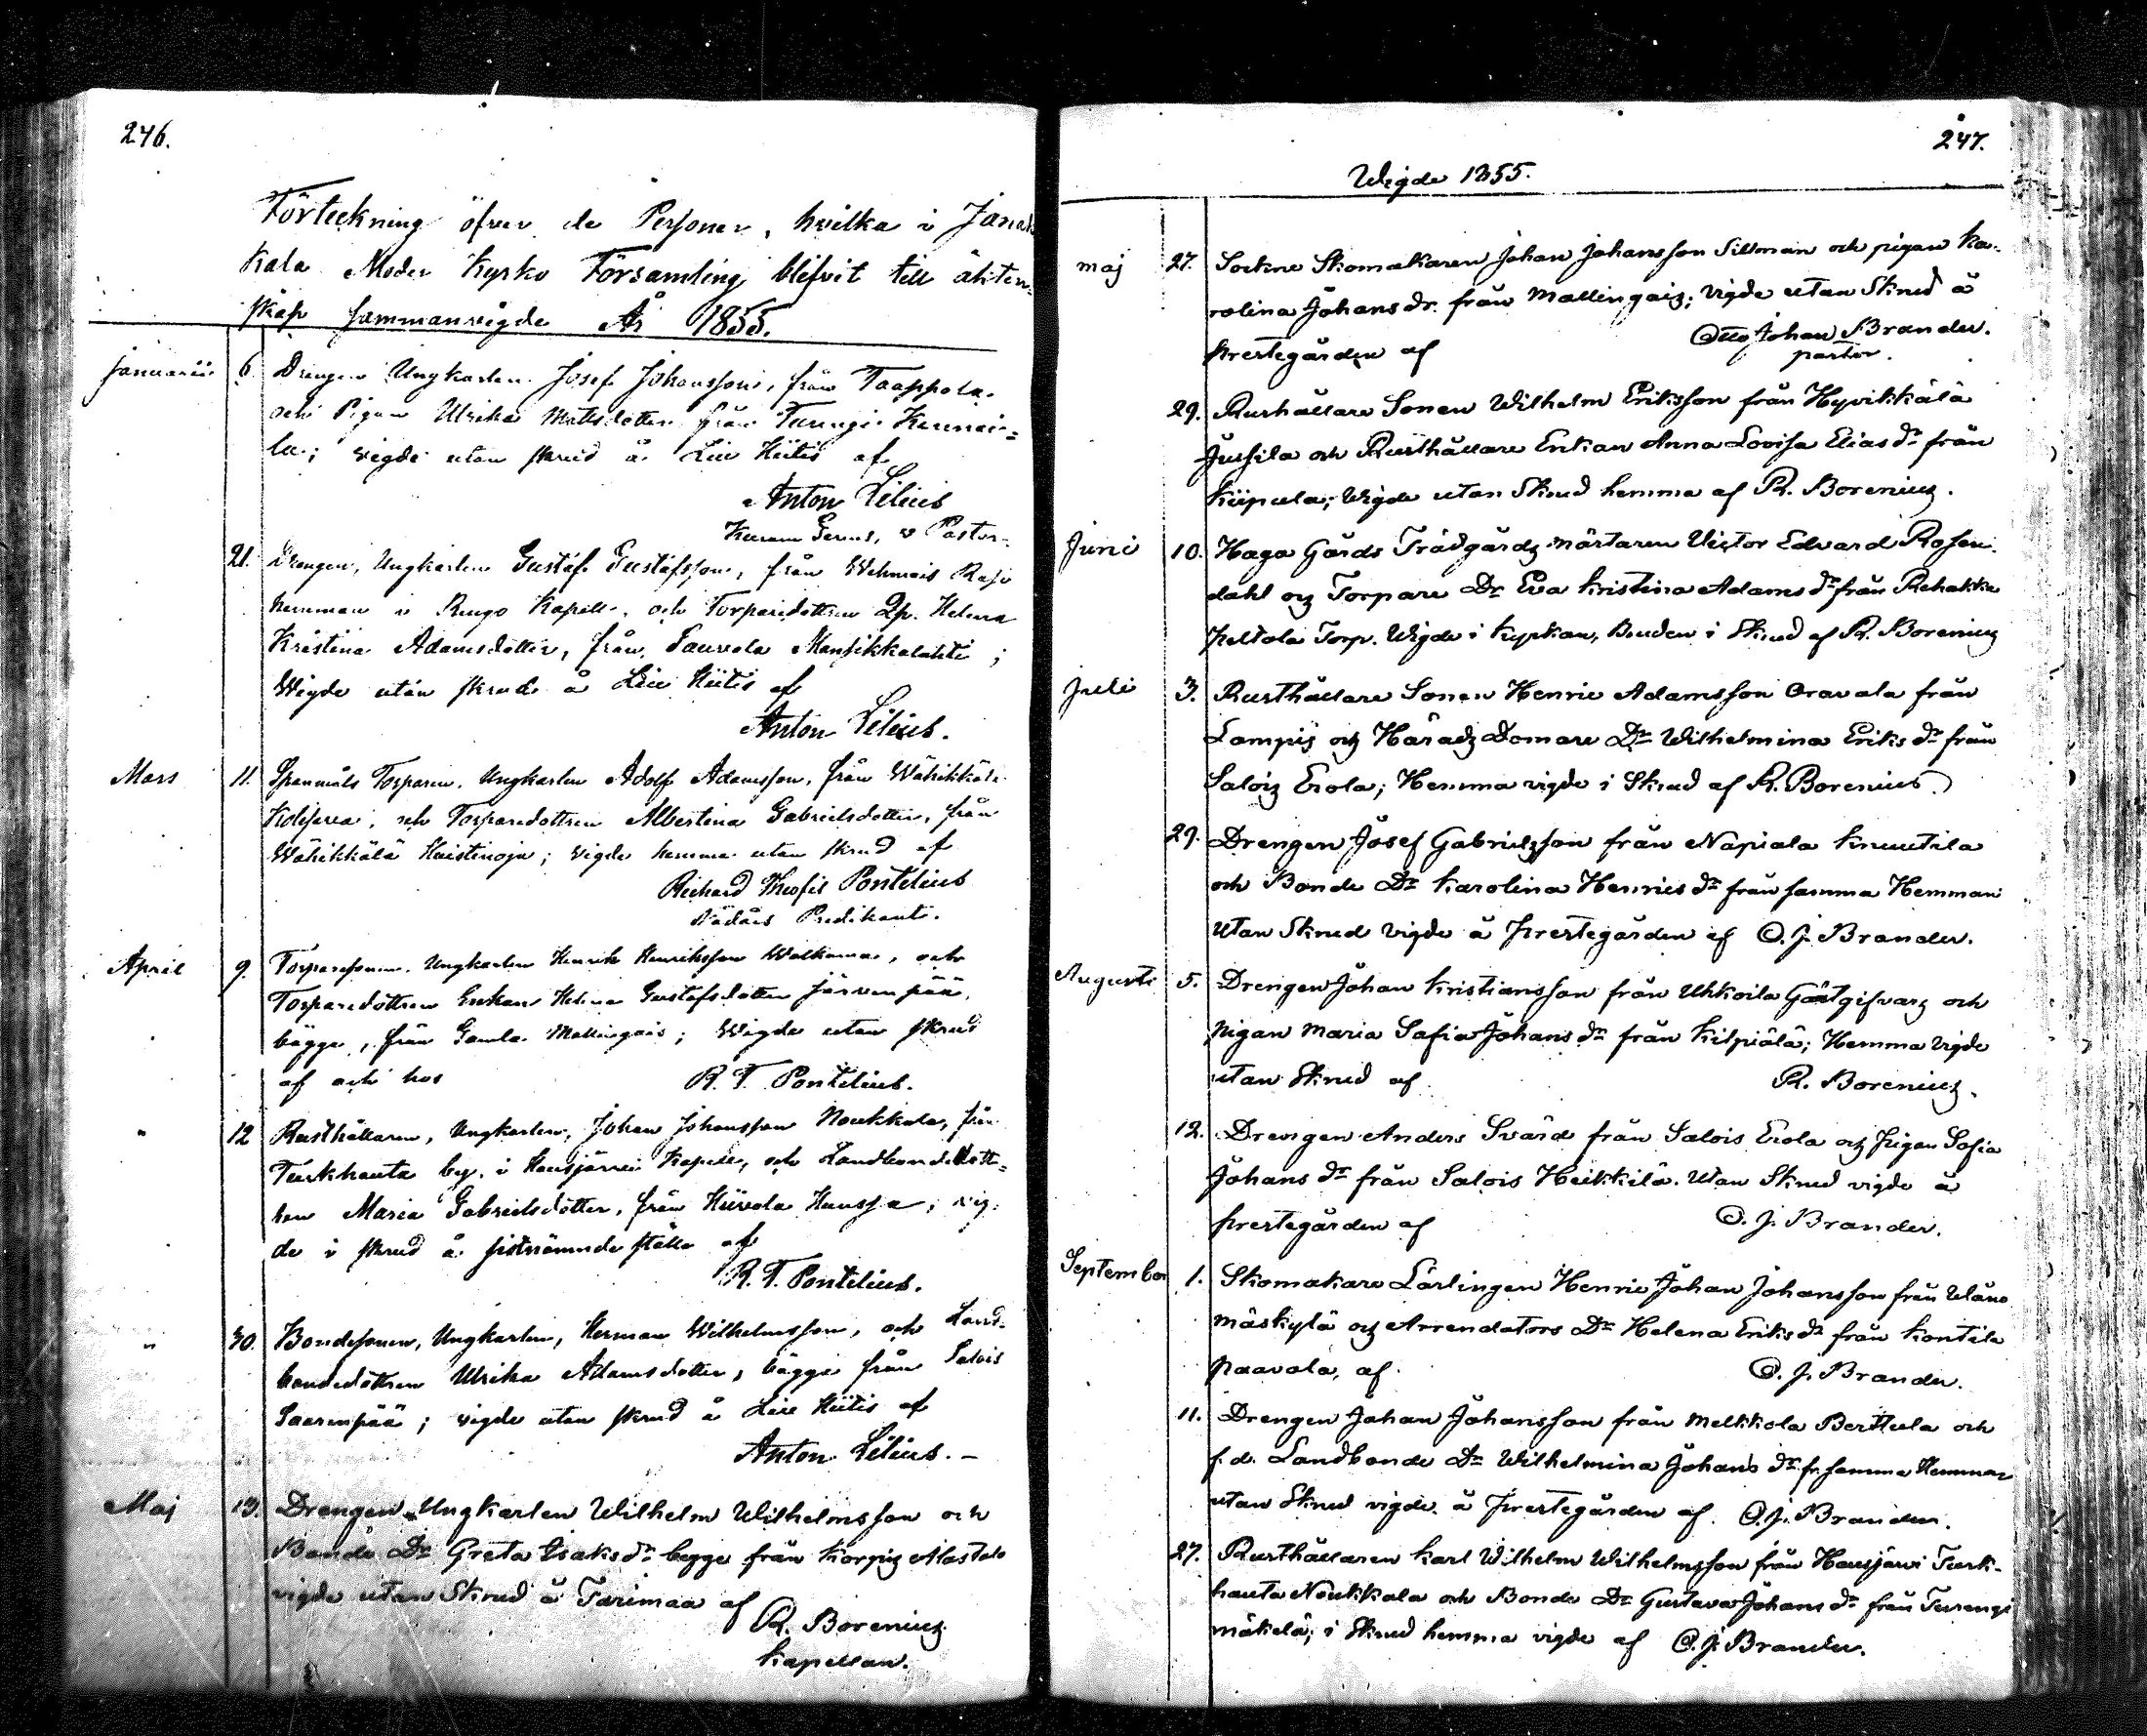 246.
Förteckning öfver de Personer, hvilka i Janak
kala Moder Kyrko Församling blifvit till äkten-
skap sammanvigde År 1855.
januarii 6. Drengen Ungkarlen Josef Johansson, från Taappola
och Pigan Ulrika Mattsdotter från Turengi
la; vigde utan skrud å Lill Hiitis af
Anton Lilius
v Pastor.
21. Drengen, Ungkarlen Gustaf Gustafsson, från
hemman i Rengo Kapell, och Torparedottren Qp. Helena
Kristina Adamsdotter, från Mansikkalahti;
Wigde utan skrud å Lill Hiitis af
Anton Lilius.
Mars 11. Spanmåls Torparen, Ungkarlen Adolf Adamsson, från Wähikkälä
och Torparedottren Albertina Gabrielsdotter, från
Wähikkälä Haistinoja; vigde hemma utan skrud af
Richard Theofil Pontelius
Nådårs Predikant.
April 9. Torparesonen, Ungkarlen Henrik Henriksson och
Torparedottren Enkan Helena Gustafsdotter Järvenpää,
bägge, från Gamla Mallingais; Wigde utan skrud
af och hos R. T. Pontelius.
" 12 Rusthållaren, Ungkarlen, Johan Johansson Noukkala, från
Turkhauta by, i Hausjärvi Kapell, och Landbondedott-
ren Maria Gabrielsdotter, från Hiivola Hanssa; vig-
de i skrud å sistnämnde ställe af
R. T. Pontelius.
" 30. Bondesonen, Ungkarlen, Herman Wilhelmsson, och Land-
bondedottren Ulrika Adamsdotter, bägge från Salois
Saarenpää; vigde utan skrud å Lill Hiitis af
Anton Lilius. –
Maj 13. Drengen Ungkarlen Wilhelm Wilhelmsson och
Bonde Dr Greta Isaks dr begge från Korpis Alastalo
vigde utan Skrud å Tarimaa af
R. Borenius
Kapellan.
247.
Wigde 1855.
maj 27. Sockne Skomakaren Johan Johansson Sillman och pigan Ka-
rolina Johans dr. från Mallingais; vigde utan Skrud å
prestegården af Otto Johan Brander.
pastor.
29. Rusthållare Sonen Wilhelm Eriksson från Hyvikkälä
Jussila och Rusthållare Enkan Anna Lovisa Elias dr från
Kiipula; Wigde utan Skrud hemma af R. Borenius.
Juni 10. Haga Gårds Trädgårds mästaren Victor Edvard Rosen-
dahl och Torpare Dr Eva Kristina Adams dr från Rehakka
Keltola Torp. Wigde i Kyrkan, Bruden i Skrud af R. Borenius
Juli 3. Rusthållare Sonen Henric Adamsson Oravala från
Lampis och Härads Domare Dr Wilhelmina Eriks dr från
Salois Erola; Hemma vigde i Skrud af R. Borenius.
29. Drengen Josef Gabrielsson från Napiala Knuutila
och Bonde Dr Karolina Henrics dr från samma Hemman
utan Skrud vigde å Prestegården af O. J. Brander.
Augusti 5. Drengen Johan Kristiansson från Uhkoila Gästgifvars och
pigan Maria Safia Johans dr från Kilpiälä; Hemma vigde
utan Skrud af R. Borenius.
12. Drengen Anders Svärd från Salois Erola och Pigan Sofia
Johans dr från Salois Heikkilä. Utan Skrud vigde å
prestegården af O. J. Brander.
September 1. Skomakare Lärlingen Henric Johan Johansson från Uläno
mäskylä och Arrendators Dr Helena Eriks dr från Kontila
Paavola, af O. J. Brander.
11. Drengen Johan Johansson från Melkkola Berttula och
f. d. Landbonde Dr Wilhelmina Johans dr fr. samma Hemman
utan Skrud vigde å Prestegården af O. J. Brander.
27. Rusthållaren Karl Wilhelm Wilhelmsson från Hausjärvi Turk-
hauta Noukkala och Bonde Dr Gustava Johans dr från Turengi
Mäkelä; i Skrud hemma vigde af O. J. Brander.